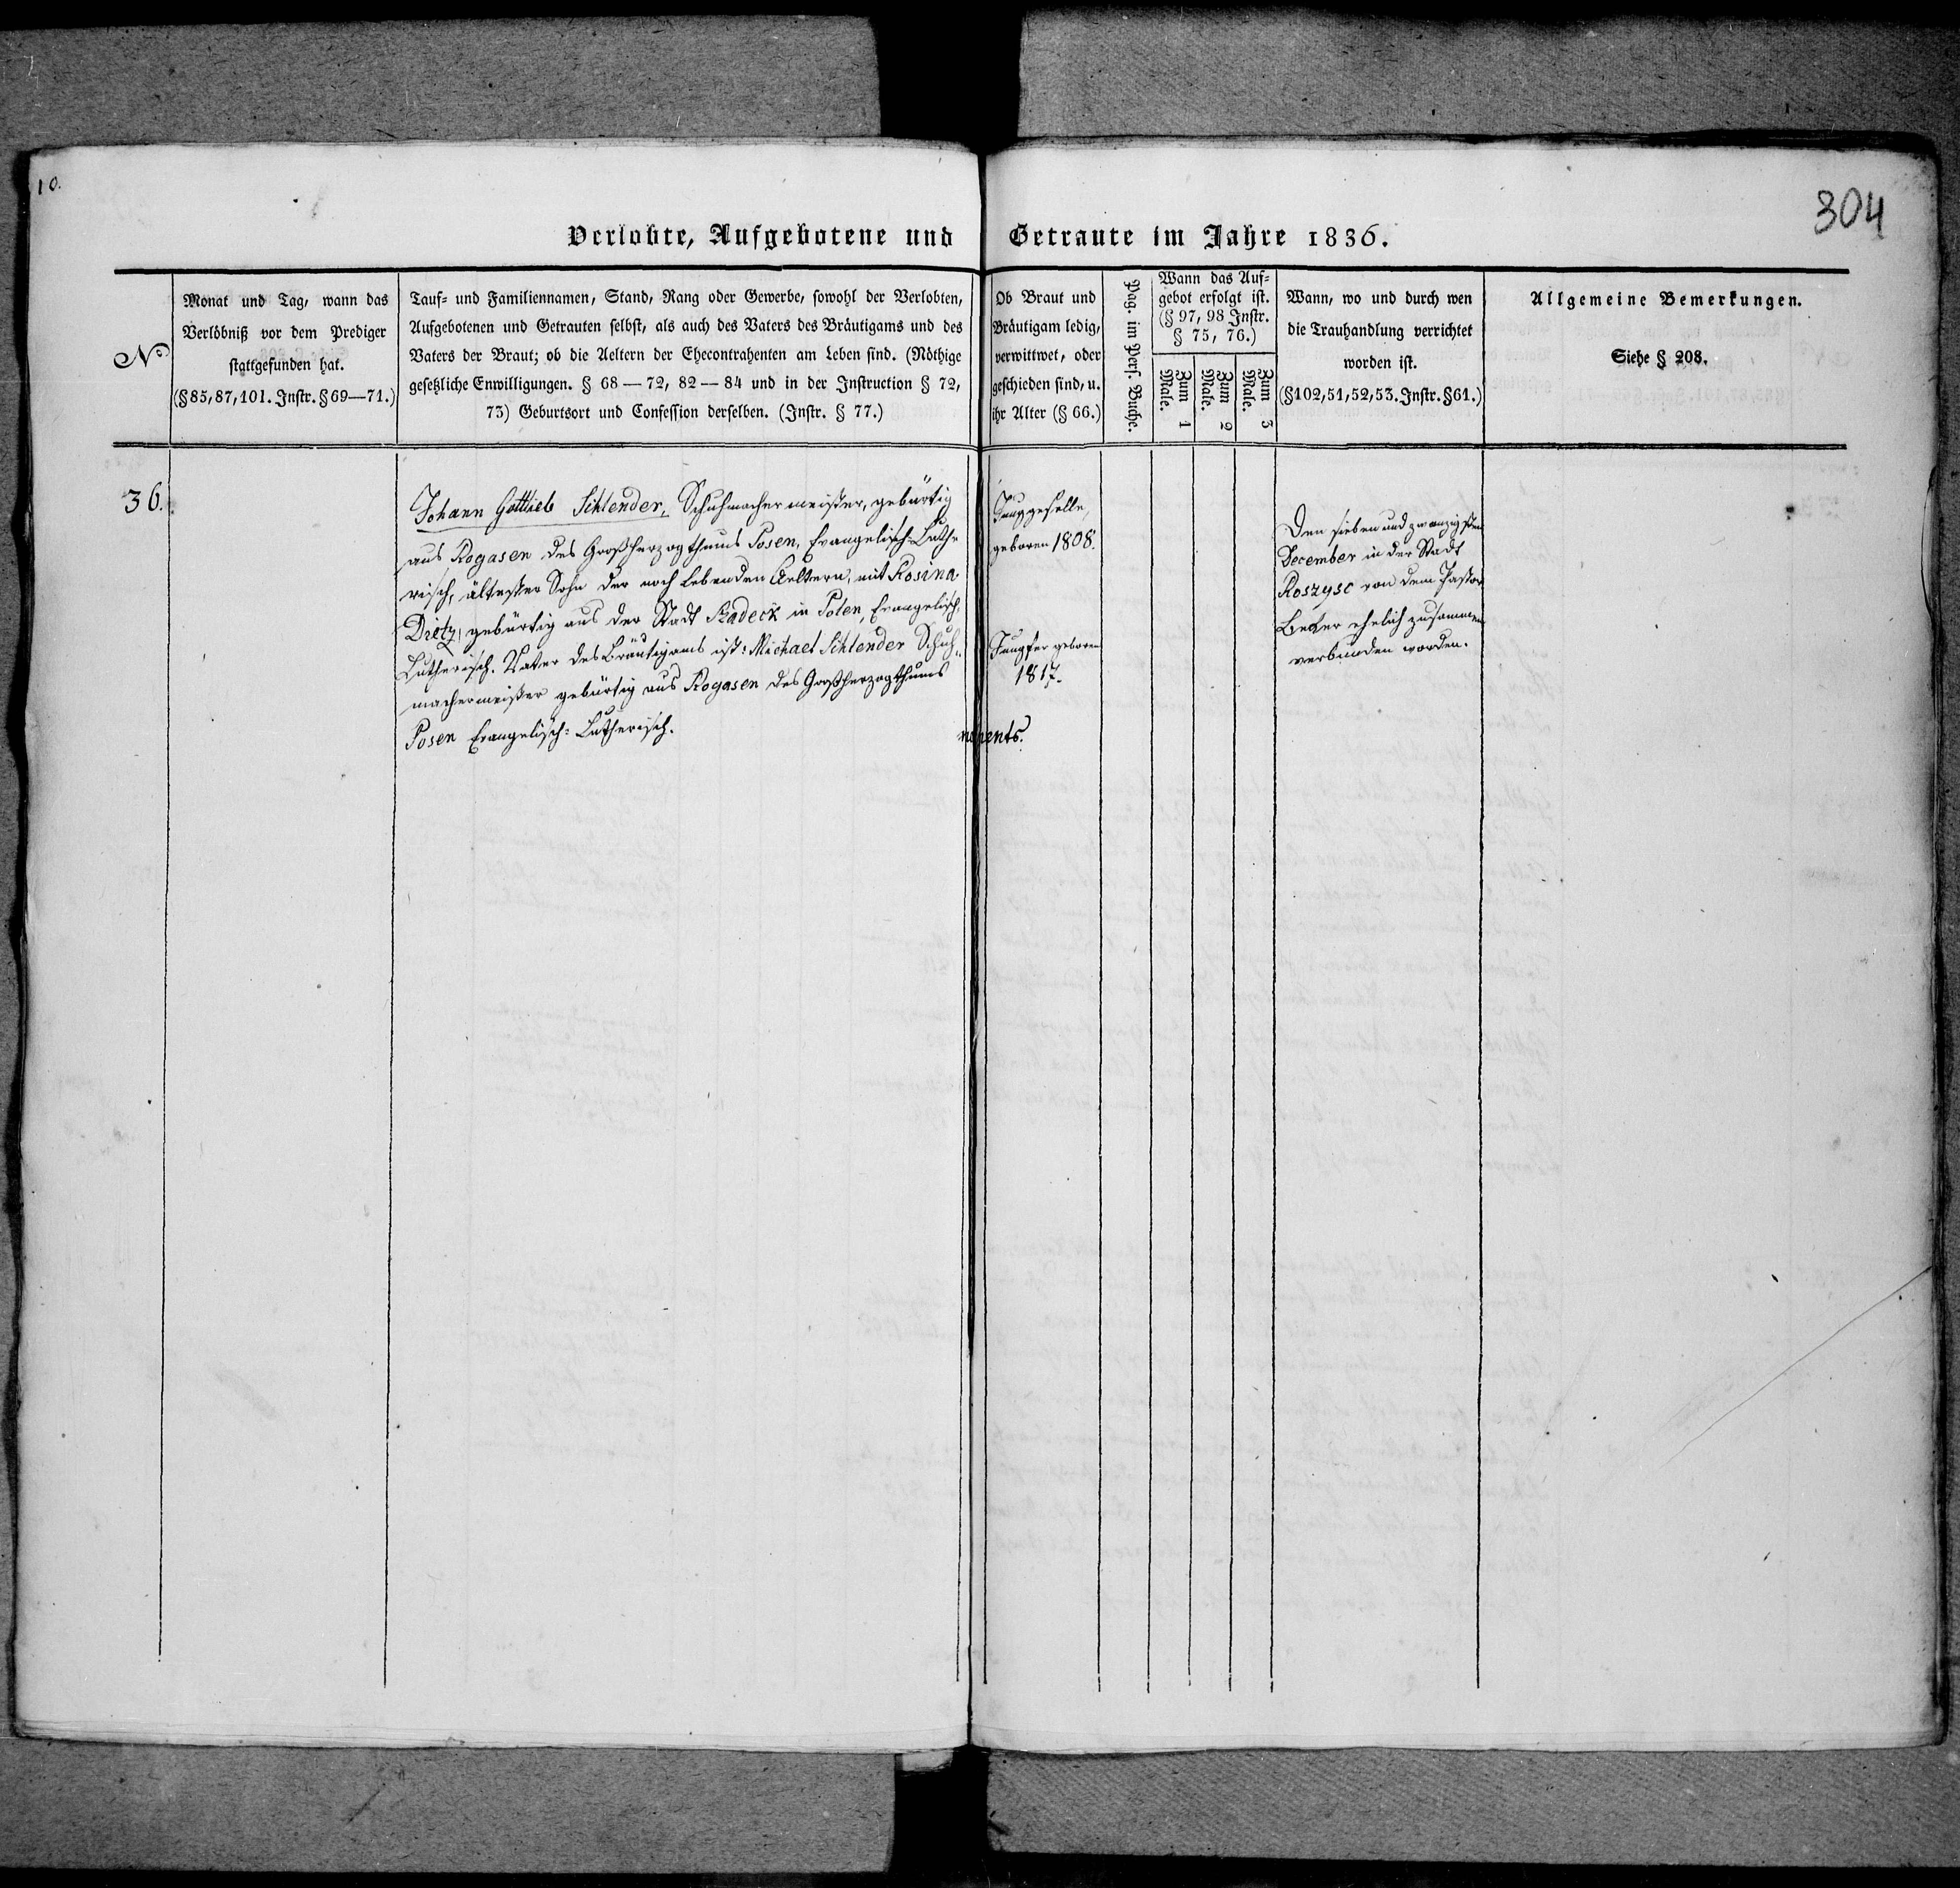 10.
304
Verlobte, Aufgebotene und Getraute im Jahre 1836.
No
Monat und Tag, wann das
Verlöbniß vor dem Prediger
stattgefunden hat.
(§ 85, 87, 101. Instr. § 69—71.)
Tauf- und Familiennamen, Stand, Rang oder Gewerbe, sowohl der Verlobten,
Aufgebotenen und Getrauten selbst, als auch des Vaters des Bräutigams und des
Vaters der Braut; ob die Aeltern der Ehecontrahenten am Leben sind. (Nöthige
gesetzliche Enwilligungen. § 68 — 72, 82 — 84 und in der Instruction § 72,
73) Geburtsort und Confession derselben. (Instr. § 77.)
Ob Braut und
Bräutigam ledig,
verwittwet, oder
geschieden sind, u.
ihr Alter (§ 66.)
Pag. im Pers. Buche.
Wann das Auf-
gebot erfolgt ist.
(§ 97, 98 Instr.
§ 75, 76.)
Zum 1 Male.
Zum 2 Male.
Zum 3 Male.
Wann, wo und durch wen
die Trauhandlung verrichtet
worden ist.
(§ 102, 51, 52, 53. Instr. § 61.)
Allgemeine Bemerkungen.
Siehe § 208.
36.
Johann Gottlieb Schlender, Schuhmachermeister, gebürtig
aus Rogasen des Großherzogthums Posen, Evangelisch-Luthe
risch, ältester Sohn der noch lebenden Aeltern, mit Rosina
Dietz, gebürtig aus der Stadt Radeck in Polen, Evangelisch
Lutherisch. Vater des Bräutigams ist: Michael Schlender Schuh-
machermeister gebürtig aus Rogasen des Großherzogthums
Posen Evangelisch-Lutherisch.
Junggeselle,
geboren 1808.
Jungfer geboren
1817.
Den sieben und zwanzigsten
December in der Stadt
Roszysc von dem Pastor
Beker ehelich zusammen
verbunden worden.